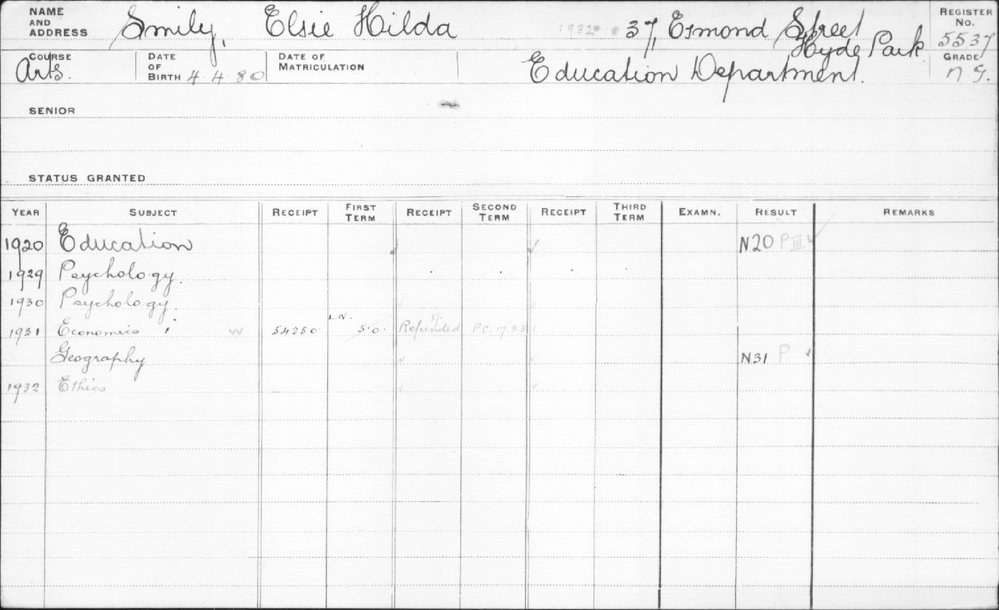 NAME AND ADDRESS Smily, Elsie Hilda 1932 37, Esmond Street Hyde Park REGISTER No. 5537
COURSE Arts. DATE OF BIRTH 4.4.80 DATE OF MATRICULATION Education Department. GRADE n.g.
SENIOR
STATUS GRANTED
YEAR SUBJECT RECEIPT FIRST TERM RECEIPT SECOND TERM RECEIPT THIRD TERM EXAMN. RESULT REMARKS
1920 Education ✓ ✓ N20 P III ✓
1929 Psychology.
1930 Psychology. ✓
1931 Economics i W 54250 5.0. Refunded P.C.
Geography ✓ ✓ N31 P ✓
1932 Ethics ✓ ✓